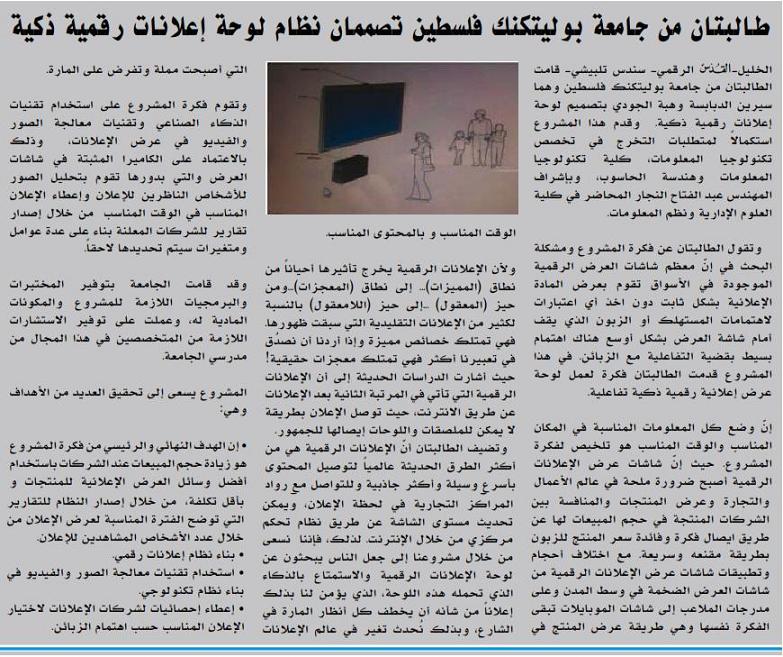 طالبتان من جامعة بوليتكنك فلسطين تصممان نظام لوحة إعلانات رقمية ذكية
الخليل-القدس الرقمي- سندس تلبيشي- قامت
الطالبتان من جامعة بوليتكنك فلسطين وهما
سيرين الدبابسة وهبة الجودي بتصميم لوحة
إعلانات رقمية ذكية. وقدم هذا المشروع
استكمالاً لمتطلبات التخرج في تخصص
تكنولوجيا المعلومات، كلية تكنولوجيا
المعلومات وهندسة الحاسوب، وبإشراف
المهندس عبد الفتاح النجار المحاضر في كلية
العلوم الإدارية ونظم المعلومات.
وتقول الطالبتان عن فكرة المشروع ومشكلة
البحث في إنّ معظم شاشات العرض الرقمية
الموجودة في الأسواق تقوم بعرض المادة
الإعلانية بشكل ثابت دون اخذ أي اعتبارات
لاهتمامات المستهلك أو الزبون الذي يقف
أمام شاشة العرض بشكل أوسع هناك اهتمام
بسيط بقضية التفاعلية مع الزبائن. في هذا
المشروع قدمت الطالبتان فكرة لعمل لوحة
عرض إعلانية رقمية ذكية تفاعلية.
إنّ وضع كل المعلومات المناسبة في المكان
المناسب والوقت المناسب هو تلخيص لفكرة
المشروع. حيث إنّ شاشات عرض الإعلانات
الرقمية أصبح ضرورة ملحة في عالم الأعمال
والتجارة وعرض المنتجات والمنافسة بين
الشركات المنتجة في حجم المبيعات لها عن
طريق ايصال فكرة وفائدة سعر المنتج للزبون
بطريقة مقنعه وسريعة. مع اختلاف أحجام
وتطبيقات شاشات عرض الإعلانات الرقمية من
شاشات العرض الضخمة في وسط المدن وعلى
مدرجات الملاعب إلى شاشات الموبايلات تبقى
الفكرة نفسها وهي طريقة عرض المنتج في
الوقت المناسب و بالمحتوى المناسب.
ولأن الإعلانات الرقمية يخرج تأثيرها أحياناً من
نطاق (المميزات)... إلى نطاق (المعجزات)...ومن
حيز (المعقول) ..إلى حيز (اللامعقول) بالنسبة
لكثير من الإعلانات التقليدية التي سبقت ظهورها.
فهي تمتلك خصائص مميزة وإذا أردنا أن نصدُق
في تعبيرنا أكثر فهي تمتلك معجزات حقيقية!
حيث أشارت الدراسات الحديثة إلى أن الإعلانات
الرقمية التي تأتي في المرتبة الثانية بعد الإعلانات
عن طريق الانترنت، حيث توصل الإعلان بطريقة
لا يمكن للملصقات واللوحات إيصالها للجمهور.
وتضيف الطالبتان أنّ الإعلانات الرقمية هي من
أكثر الطرق الحديثة عالمياً لتوصيل المحتوى
بأسرع وسيلة وأكثر جاذبية وللتواصل مع رواد
المراكز التجارية في لحظة الإعلان، ويمكن
تحديث مستوى الشاشة عن طريق نظام تحكم
مركزي من خلال الإنترنت. لذلك، فإننا نسعى
من خلال مشروعنا إلى جعل الناس يبحثون عن
لوحة الإعلانات الرقمية والاستمتاع بالذكاء
الذي تحمله هذه اللوحة، الذي يؤمن لنا بذلك
إعلاناً من شانه أن يخطف كل أنظار المارة في
الشارع، وبذلك نُحدث تغير في عالم الإعلانات
التي أصبحت مملة وتفرض على المارة.
وتقوم فكرة المشروع على استخدام تقنيات
الذكاء الصناعي وتقنيات معالجة الصور
والفيديو في عرض الإعلانات، وذلك
بالاعتماد على الكاميرا المثبتة في شاشات
العرض والتي بدورها تقوم بتحليل الصور
للأشخاص الناظرين للإعلان وإعطاء الإعلان
المناسب في الوقت المناسب من خلال إصدار
تقارير للشركات المعلنة بناء على عدة عوامل
ومتغيرات سيتم تحديدها لاحقاً.
وقد قامت الجامعة بتوفير المختبرات
والبرمجيات اللازمة للمشروع والمكونات
المادية له، وعملت على توفير الاستشارات
اللازمة من المتخصصين في هذا المجال من
مدرسي الجامعة.
المشروع يسعى إلى تحقيق العديد من الأهداف
وهي:
• إن الهدف النهائي والرئيسي من فكرة المشروع
هو زيادة حجم المبيعات عند الشركات باستخدام
أفضل وسائل العرض الإعلانية للمنتجات و
بأقل تكلفة، من خلال إصدار النظام للتقارير
التي توضح الفترة المناسبة لعرض الإعلان من
خلال عدد الأشخاص المشاهدين للإعلان.
• بناء نظام إعلانات رقمي.
• استخدام تقنيات معالجة الصور والفيديو في
بناء نظام تكنولوجي.
• إعطاء إحصائيات لشركات الإعلانات لاختيار
الإعلان المناسب حسب اهتمام الزبائن.